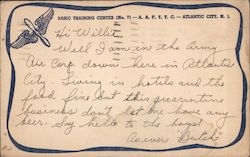 BASIC TRAINING CENTER (No. 7) — A. A. F. T. T. C. — ATLANTIC CITY, N. J.
Hi Willet
Well I am in the Army
Air Corp down here in Atlantic
City. Living in hotels and the
food fine but this quarantine
business don't let one have any
beer. Say hello to the boys!
As ever "Butch"